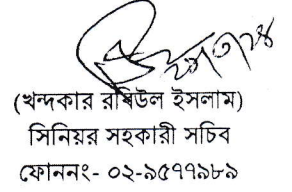 (খন্দকার রবিউল ইসলাম)
সিনিয়র সহকারী সচিব
ফোননং- ০২-৯৫৭৭৯৮৯